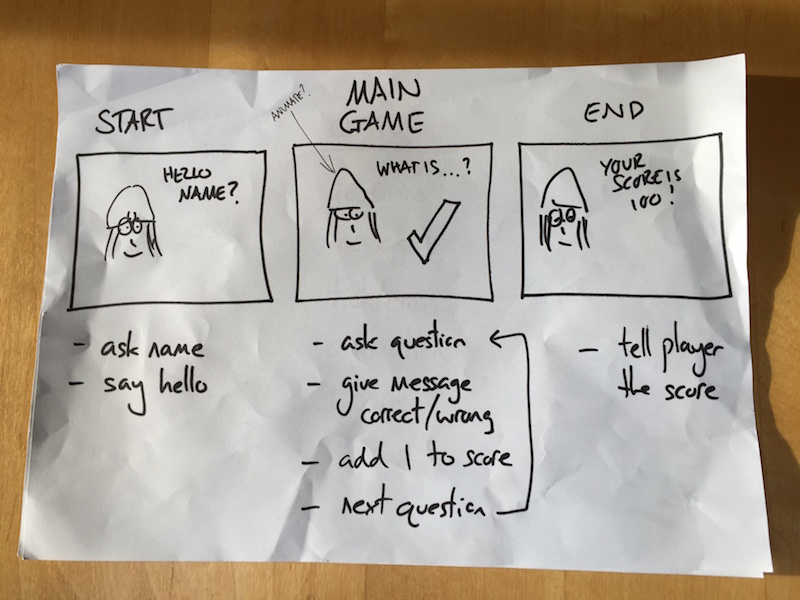 START
HELLO
NAME?
- ask name
- say hello
ANIMATE?
MAIN
GAME
WHAT IS...?
- ask question
- give message
correct/wrong
- add 1 to score
- next question
END
YOUR
SCORE IS
100!
- tell player
the score